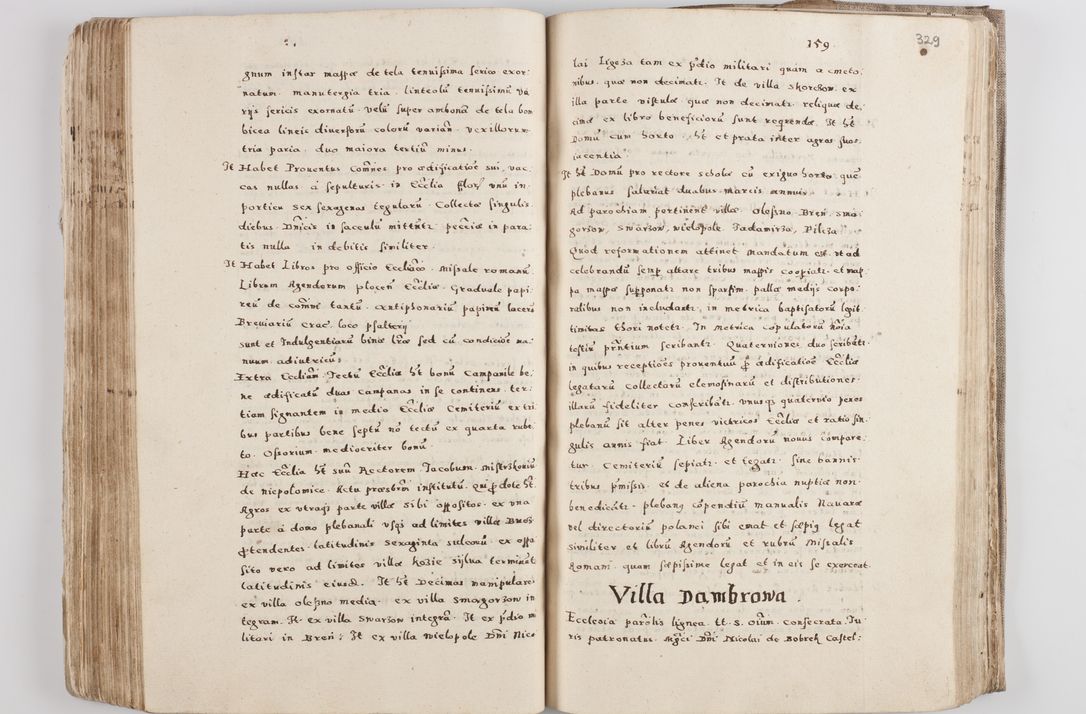 gnum instar mappæ de tela tenuissima serico exor-
natum. manutergia tria. linteolũ tenuissimũ va
rijs sericis exornatũ. velũ super ambonã de tela bom
bicea lineis diuersorũ colorũ variañ. vexillorum
tria paria. duo maiora tertiũ minus.
It Habet Prouentus Com̃nes pro ædificatioẽ sui, vac-
cas nullas à sepulturis in Ecc̃lia flor vnũ in
porticu sex sexagenas tegularũ. Collectæ singulis
diebus Dñicis in sacculũ mittunt̃. pecciæ in para
tis nulla in debitis similiter.
It Habet Libros pro officio Eccliæ. missale romanũ.
Librum Agendorum plocen̄ Eccliæ. Graduale papi
reũ de com̃ne tantũ. Antiphonariũ papireũ lacerũ
Breuiariũ Crac. loco psalterij
sunt et Indulgentiarũ binæ lr̃æ sed cũ condicioẽ ma
nuum adiutricũ.
Extra Eccliam. Tectũ Eccliæ hẽt bonũ Campanile be
ne ædificatũ duas campanas in se continens, ter
tiam signantem in medio Eccliæ. Cemiteriũ ex tri
bus partibus bene septũ nõ tectũ ex quarta rubi
to. Ossorium mediocriter bonũ.
Hæc Ecclia hẽt suũ Rectorem Jacobum Mistrzkoniũ
de niepolomice. Actu præsbrm̃ institutũ. Qui p dote hẽt
Agros ex vtraq; parte villæ sibi oppositos. ex vna
parte à domo plebanali vsq; ad limites villæ Breñ
ptendentes. latitudinis sexaginta sulcorũ. ex oppo
sito vero ad limites villæ kozie sijlua terminat̃
latitudinis eiusd. It hẽt Decimas manipulares
ex villa oleßno media. ex villa Smagorzow in
tegram. It ex villa Swarzow integrã. It ex p̃dio mi
litari in Breñ; It ex villa wielopole Dñi Nico
159
329
lai Ligęza tam ex p̃dio militari quàm a cmeto-
nibus. quæ non decimat̃. It de villa Skorczow. ex
illa parte vistulæ quæ non decimat̃. reliquæ de-
cimæ ex libro beneficiorũ sunt reqrendæ. It hẽt
Domũ cum horto. hẽt et prata inter agros suos
iacentia.
It hẽt Domũ pro rectore scholæ cũ exiguo horto quẽ
plebanus salariat duabus marcis annuis.
Ad parochiam pertinent villæ Oleßno. Breñ, Sma
gorzow, Swarzow, wielopole Dadamirza, Piliza.
Quod reformationem attinet mandatum est, vt ad
celebrandũ semp altare tribus mappis cooptat̃, et map
pa mappæ supponat̃ non sparsim. pallæ medijs corpo
ralibus non includant̃, in metrica baptisatorũ legit
timitas thori notet̃. In metrica copulatorũ no͂ia
testiũ pn̄tium scribant̃. Quaterniones duo scribant̃
in quibus receptioẽs prouentuũ p ædificatioẽ Eccliæ
legatarũ Collectarũ elemosinarũ et distributiones
illarũ fideliter conscribat̃. vnusq; quaternio penes
plebanũ sit alter penes vitricos Eccliæ et ratio sin
gulis annis fiat. Liber Agendorũ nouus compare
tur. Cemiteriũ sepiat̃. et tegat̃. sine bannis
tribus p̃missis et de aliena parochia nuptiæ non
benedicãt̃. plebany cõpendiũ manualis Nauaræ
vel directoriũ polanci sibi emat et sæpiq legat
similiter et librũ Agendorũ et rubrũ Missalis
Romani quam sæpissime legat et in eis se exerceat.
Villa Dambrowa.
Ecclesia parolis lignea tt. S. oĩum. consecrata. Ju
ris patronatus Mgci Dñi Nicolai de Bobrek Castel: